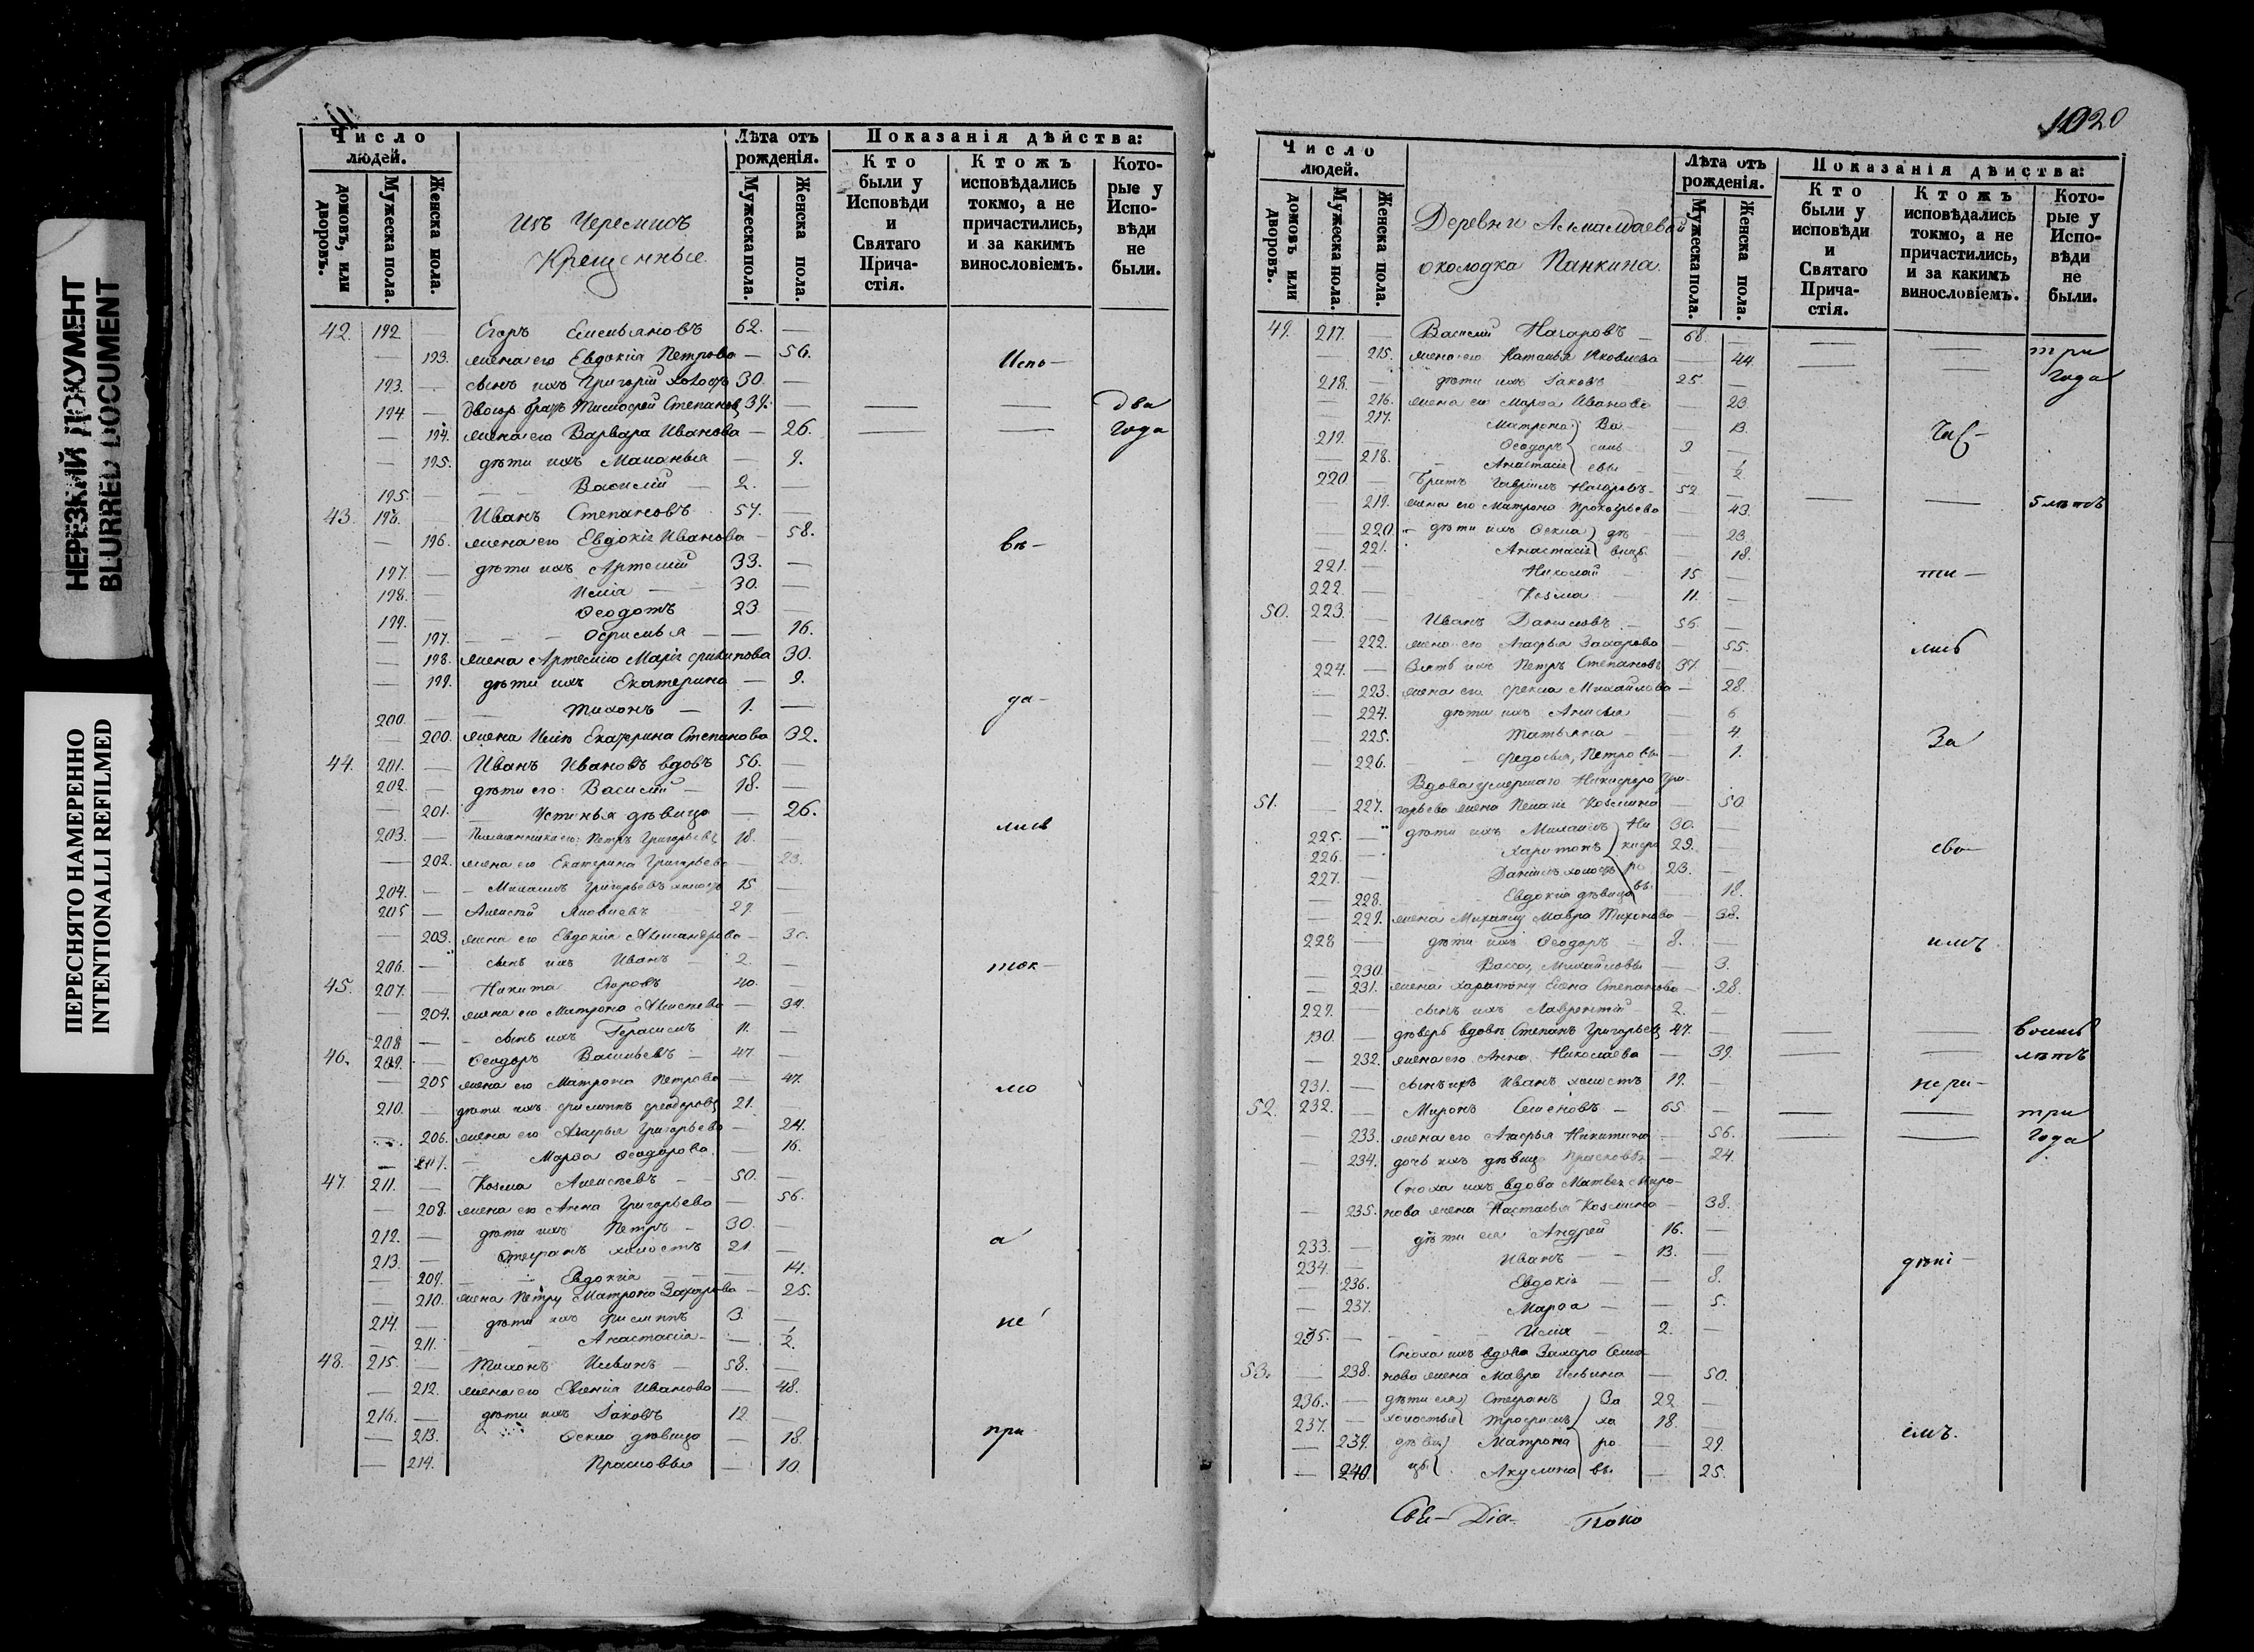 НЕРЕЗКИЙ ДОКУМЕНТ
BLURRED DOCUMENT
ПЕРЕСНЯТО НАМЕРЕННО
INTENTIONALLI REFILMED
Число людей.
домовъ, или дворовъ.
Мужеска пола.
Женска пола.
Изъ Черемисъ
Крещенные
Лѣта отъ рожденія.
Мужеска пола.
Женска пола.
Показанія дѣйства:
Кто были у Исповѣди и Святаго Причастія.
Ктожъ исповѣдались токмо, а не причастились, и за какимъ винословіемъ.
Которые у Исповѣди не были.
42. 192 — Егоръ Емельяновъ 62. —
— 193. жена его Евдокія Петрова — 56. Испо-
193. — сынъ ихъ Григорій холостъ 30. —
194. — двоюр. братъ Тимофей Степановъ 39. — — — два
— 194. жена его Варвара Иванова — 26. — — года
— 195. дѣти ихъ Маланья — 9.
195. — Василій — 2. —
43. 196. — Иванъ Степановъ 57. —
— 196. жена его Евдокія Иванова — 58. вѣ-
197. — дѣти ихъ Артемій 33. —
198. — Илія 30. —
199. — Ѳеодотъ 23 —
— 197. Ефимья — 16.
— 198. жена Артемію Марія Филипова 30.
— 199. дѣти ихъ Екатерина — 9.
200. — Тихонъ — 1. — да-
— 200. жена Иліи Екатерина Степанова 32.
44. 201. — Иванъ Ивановъ вдовъ 56. —
202. — дѣти его: Василій — 18. —
— 201. Устинья дѣвица — 26.
203. — Племянники его: Петръ Григорьевъ 18. — лись
— 202. жена его Екатерина Григорьева — 23.
204. — Михаилъ Григорьевъ холостъ 15 —
205 — Алексѣй Яковлевъ 29. —
— 203. жена его Евдокія Александрова — 30.
206. — сынъ ихъ Иванъ — 2. — ток-
45. 207. — Никита Егоровъ 40. —
— 204. жена его Матрона Алексѣева — 34.
208 — сынъ ихъ Герасимъ 11. —
46. 209. — Ѳеодоръ Васильевъ — 47. —
— 205 жена его Матрона Петрова — 47. мо
210. — дѣти ихъ Филиппъ Феодоровъ 21. —
206. жена его Агафья Григорьева — 24.
— 207. Марѳа Ѳеодорова — 16.
47. 211. — Козма Алексѣевъ 50. —
— 208. жена его Анна Григорьева — 56.
212. — дѣти ихъ Петръ — 30. — а
213. — Стефанъ холостъ 21 —
— 209. Евдокія — 14.
— 210. жена Петру Матрона Захарова — 25.
214. — дѣти ихъ Филиппъ 3. — не
— 211. Анастасія — ½.
48. 215. — Тихонъ Ильинъ — 58. —
— 212. жена его Евгенія Иванова — 48.
216. — дѣти ихъ Іаковъ 12. —
— 213. Ѳекла дѣвица — 18. при
— 214. Прасковья — 10.
1020
Число людей.
домовъ или дворовъ.
Мужеска пола.
Женска пола.
околодка Панкина.
Лѣта отъ рожденія.
Мужеска пола.
Женска пола.
Показанія дѣйства:
Кто были у исповѣди и Святаго Причастія.
Ктожъ исповѣдались токмо, а не причастились, и за какимъ винословіемъ.
Которые у Исповѣди не были.
49. 217. — Василій Назаровъ — 68. — — — три
— 215. жена его Наталья Яковлева — 44. — — года
218. — дѣти ихъ Іаковъ 25. —
— 216. жена его Марѳа Иванова — 23
217. Матрона Ва — 13.
219. — Ѳеодоръ силь 9 —
— 218. Анастасія евы — ½
220 — Братъ Гавріилъ Назаровъ 52 — — — 5 лѣтъ
219. жена его Матрона Прокофьева — 43
— 220. дѣти ихъ Ѳекла дѣ — 23.
— 221. Анастасія вицы — 18.
221. — Николай 15 — ти-
222. — Козма 11. —
50. 223. — Иванъ Даниловъ — 56. —
— 222. жена его Агафья Захарова — 55. лись
224. — Зять ихъ Петръ Степановъ 37. —
— 223. жена его Фекла Михайлова — 28.
224. дѣти ихъ Анисья — 6
— 225. Татьяна — 4. За
— 226. Федосья, Петровы — 1.
Вдова умершаго Никифора Гри-
51. — 227. горьева жена Пелагія Козмина — 50.
225. — дѣти ихъ Михаилъ Ни 30. —
226. — Харитонъ кифо 29. — сво-
227. — Даніилъ холостъ ро 23. —
— 228. Евдокія дѣвица вы — 18.
— 229. жена Михаилу Мавра Тихонова — 38.
228 — дѣти ихъ Ѳеодоръ — 8. — имъ
— 230. Васса, Михайловы — 3.
231. жена Харитону Елена Степанова — 28.
229. — сынъ ихъ Лаврентій 2. —
130. — дѣверь вдовъ Степанъ Григорьевъ 47. — — — восемь
— 232. жена его Анна Николаева — 39. — — лѣтъ
231. — сынъ ихъ Иванъ холостъ 19. — нера-
52. 232. — Миронъ Семеновъ — 65. — — — три
— 233. жена его Агафья Никитина — 56. — — года
— 234. дочь ихъ дѣвица Прасковья — 24.
Сноха ихъ вдова Матвея Миро-
— 235. нова жена Настасья Козмина — 38.
233. — дѣти ея Андрей 16. —
234. — Иванъ — 13. — дѣні-
— 236. Евдокія — 8.
— 237. Марѳа — 5.
235. — Илія 2. —
Сноха ихъ вдова Захара Семе-
53. — 238. нова жена Мавра Ильина — 50.
236. — дѣти ея Стефанъ За 22 —
237. — холостые Трофимъ ха 18. —
— 239. дѣви Матрона ро — 29. емъ.
— 240. цы Акулина вы — 25.
Свя- Діа- Поно